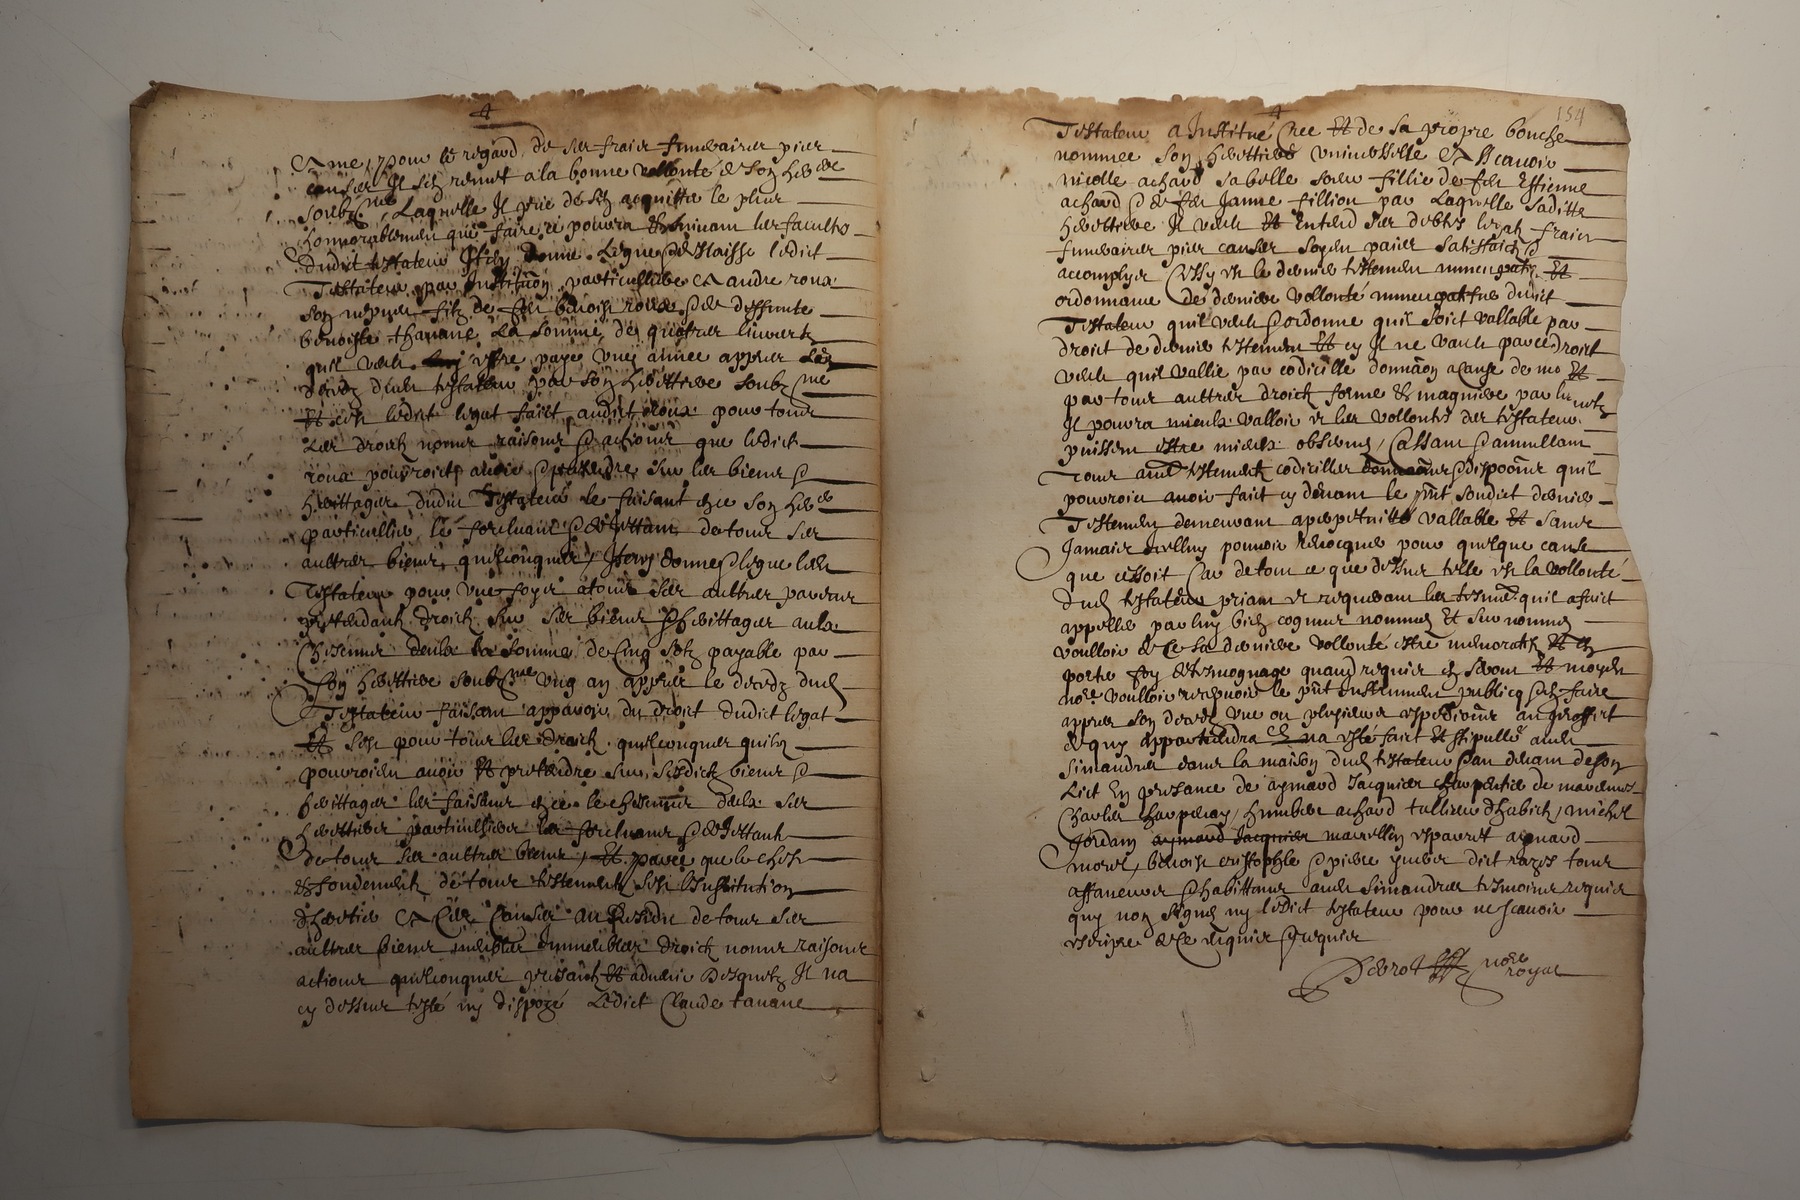 ame, pour le regard de ses fraiz funeraires pies
causes Il sen remet a la bonne vollonté de son here
soubz nee Laquelle Il prie de sen acquitter le plus
honnorablement que faire ce pourra suivant les facultes
dudict testateur Item donne Legue delaisse ledict
Testateur par Institution particulliere a andre roux
son nepveu filz de feu benoist roux de deffunte
benoiste thavane La somme de quattre livres
quil veult estre paye ung annee appres Les
deces dudit testateur par son herettiere soubz nee
Et est ledict legat faict audict Roux pour tous
Les droictz noms raisons actions que ledict
roux pouvroict avoir pretendre sur les biens
herittages dudict Testateur le faisant en ce son here
particullier le forcluant de tous ses
auttres biens quelconques Item donne legue ledit
Testateur pour une foys a tous ses auttres parens
prettendantz droict sur ses biens herittages aulx
Chescungs deulx la somme de Cinq solz payable par
son herettiere soubz nee ung an appres le deces dudit
Testateur faisant apparoir du droict dudict legat
Et cest pour tous les droictz quelconques quilz
pouvroient avoir Et prettendre sur sesdictz biens
herittages les faisans en ce le chescung deulx ses
herettiers particulliers les forcluans
de tous ses auttres biens, Et parce que le chefz
fondement de tous testementz cest Institution
dherettier a Ces Causes au Residu de tous ses
auttres biens meubles Immeubles droictz noms raisons
actions quelconques presantz Et advenir desquelz Il na
cy dessus testé ny disposé Ledict Claude tavane
154
Testateur a Institué Cree Et de sa propre bouche
nommee son herettiere universelle a Scavoir
nicolle achard sa belle soeur fillie de feu Estienne
achard de feu Janne fillion par Laquelle saditte
herettiere Il veult Et Entend ses debtes legatz fraiz
funeraires pies causes soyent paies satisfaictz
accomplyes Cessy est le dernier testement nuncupatif Et
ordonnance de derniere vollonté nuncupative dudict
Testateur quil veult ordonne quil soict vallable par
droict de dernier testement Et cy Il ne vault par ce droict
veult quil vallie par codicille donnaon a cause de mo Et
par tous auttres droictz forme maniere par lesquelz
Il pouvra mieulx valloir les vollontes des testateurs
puissent estre mieulx observes, Cassant annullant
Tous auttres testementz codicilles disposons quil
pouvroict avoir faict cy devant le pnt sondict dernier
Testement demeurant a perpetuitté vallable Et sans
Jamais pouvoir revocques pour quelque cause
que cessoit Car de tout ce que dessus telle est la vollonté
dudit testateur priant requerant les tesmoins quil a faict
appelle par luy bien cognus nommes Et surnommes
voulloir de ce sa derniere vollonté estre memoratifz Et en
porter foy tesmognage quand requis en seront Et moyen
nore voulloir recepvoir le pnt Instrument publicq en faire
appres son deces une ou plusieurs expeditions
de quy appartiendra Ce na esté faict Et stipullé audit
Simandres dans la maison dudit testateur au devant de son
Lict En presance de aymard Jacquier Charpentier de marennes
Charles Champelay, humbert achard tallieur dhabictz, michel
Jordain aymard Jacquier marcellin espavret aymard
morel, benoist cristophle pierre ymbert dict rages tous
affaneurs habittans audit Simandres tesmoins requis
quy nont signes ny ledict testateur pour ne scavoir
escripre de ce requis requis
nore royal